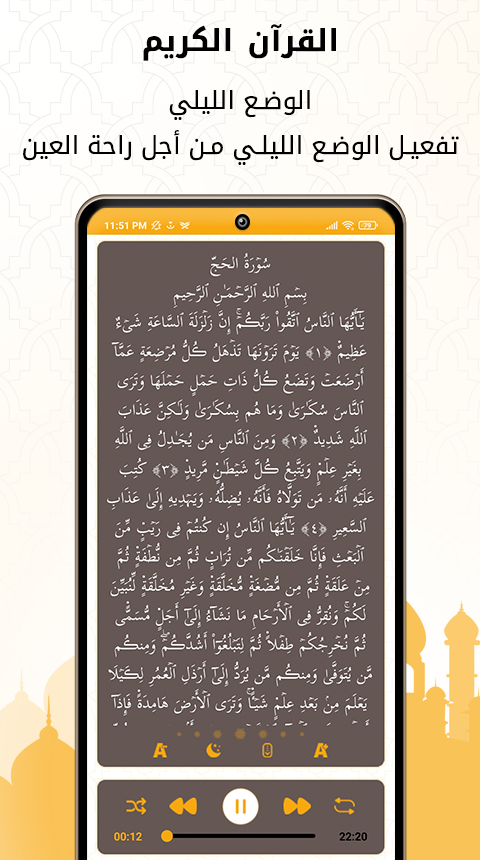 القرآن الكريم
الوضع الليلي
تفعيل الوضع الليلي من أجل راحة العين
11:51 PM
79
سُورَةُ الحَجّ
بِسْمِ ٱللهِ ٱلرَّحْمَٰنِ ٱلرَّحِيمِ
يَٰٓأَيُّهَا ٱلنَّاسُ ٱتَّقُوا۟ رَبَّكُمْۚ إِنَّ زَلْزَلَةَ ٱلسَّاعَةِ شَىْءٌ
عَظِيمٌۭ ﴿١﴾ يَوْمَ تَرَوْنَهَا تَذْهَلُ كُلُّ مُرْضِعَةٍ عَمَّآ
أَرْضَعَتْ وَتَضَعُ كُلُّ ذَاتِ حَمْلٍ حَمْلَهَا وَتَرَى
ٱلنَّاسَ سُكَٰرَىٰ وَمَا هُم بِسُكَٰرَىٰ وَلَٰكِنَّ عَذَابَ
ٱللَّهِ شَدِيدٌۭ ﴿٢﴾ وَمِنَ ٱلنَّاسِ مَن يُجَٰدِلُ فِى ٱللَّهِ
بِغَيْرِ عِلْمٍۢ وَيَتَّبِعُ كُلَّ شَيْطَٰنٍۢ مَّرِيدٍۢ ﴿٣﴾ كُتِبَ
عَلَيْهِ أَنَّهُۥ مَن تَوَلَّاهُ فَأَنَّهُۥ يُضِلُّهُۥ وَيَهْدِيهِ إِلَىٰ عَذَابِ
ٱلسَّعِيرِ ﴿٤﴾ يَٰٓأَيُّهَا ٱلنَّاسُ إِن كُنتُمْ فِى رَيْبٍۢ مِّنَ
ٱلْبَعْثِ فَإِنَّا خَلَقْنَٰكُم مِّن تُرَابٍۢ ثُمَّ مِن نُّطْفَةٍۢ ثُمَّ
مِنْ عَلَقَةٍۢ ثُمَّ مِن مُّضْغَةٍۢ مُّخَلَّقَةٍۢ وَغَيْرِ مُخَلَّقَةٍۢ لِّنُبَيِّنَ
لَكُمْۚ وَنُقِرُّ فِى ٱلْأَرْحَامِ مَا نَشَآءُ إِلَىٰٓ أَجَلٍۢ مُّسَمًّۭى
ثُمَّ نُخْرِجُكُمْ طِفْلًۭا ثُمَّ لِتَبْلُغُوٓا۟ أَشُدَّكُمْۖ وَمِنكُم
مَّن يُتَوَفَّىٰ وَمِنكُم مَّن يُرَدُّ إِلَىٰٓ أَرْذَلِ ٱلْعُمُرِ لِكَيْلَا
يَعْلَمَ مِنۢ بَعْدِ عِلْمٍۢ شَيْـًۭٔاۚ وَتَرَى ٱلْأَرْضَ هَامِدَةًۭ فَإِذَآ
A-
A+
00:12
22:20